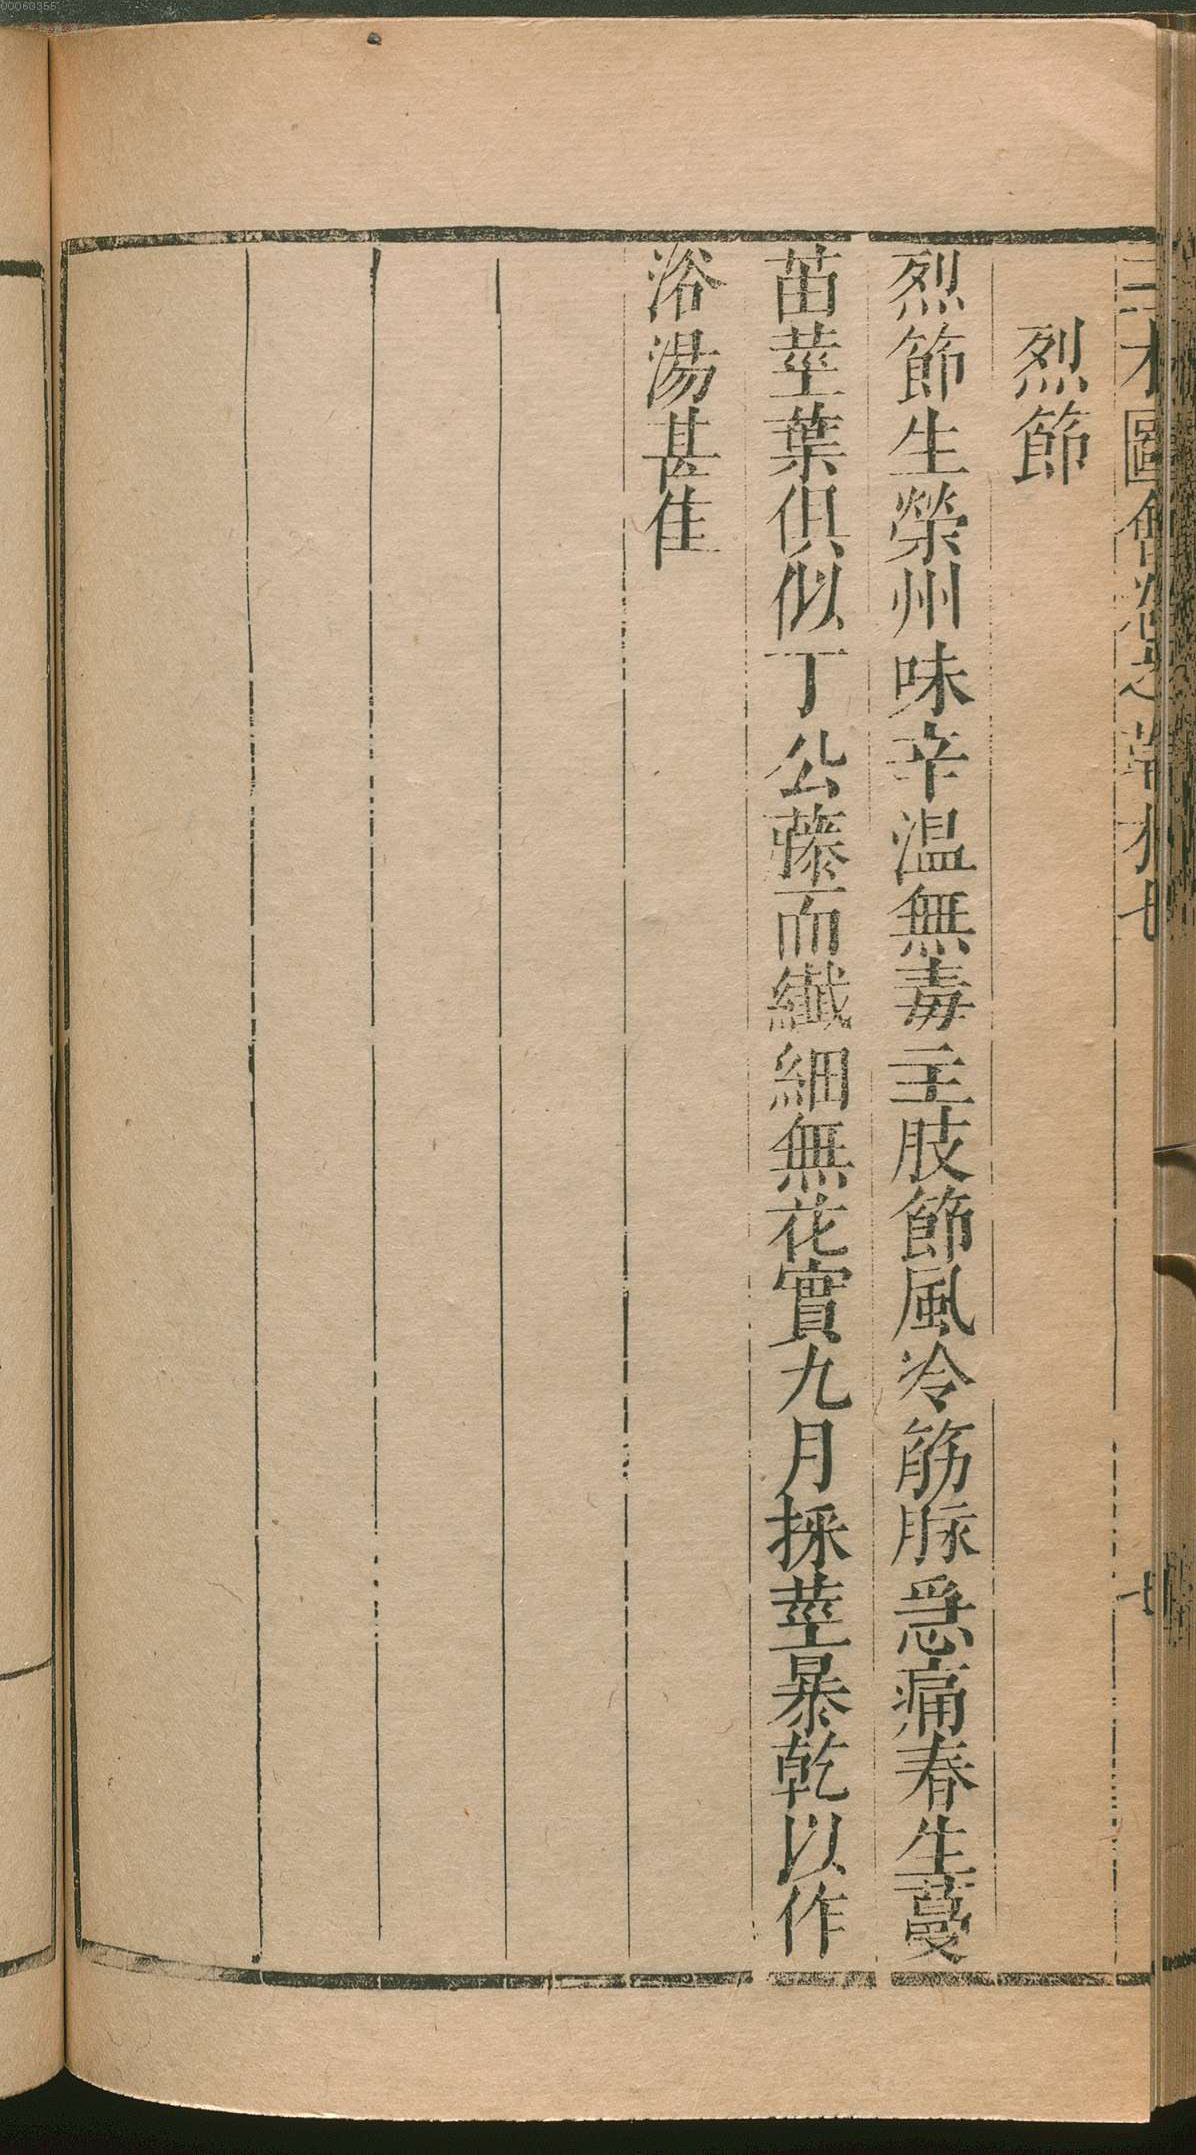 00060355
三才圖會卷之草木七
七
烈節
烈節生榮州味辛温無毒主肢節風冷筋脉急痛春生蔓
苗莖葉俱似丁公藤而纎細無花實九月採莖暴乾以作
浴湯甚佳